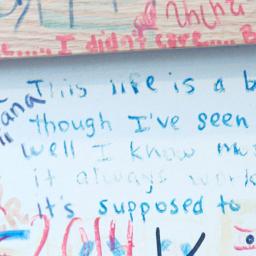 I didn't care..... B
This life is a b
ana
though I've seen
well I know
it always work
it's supposed to